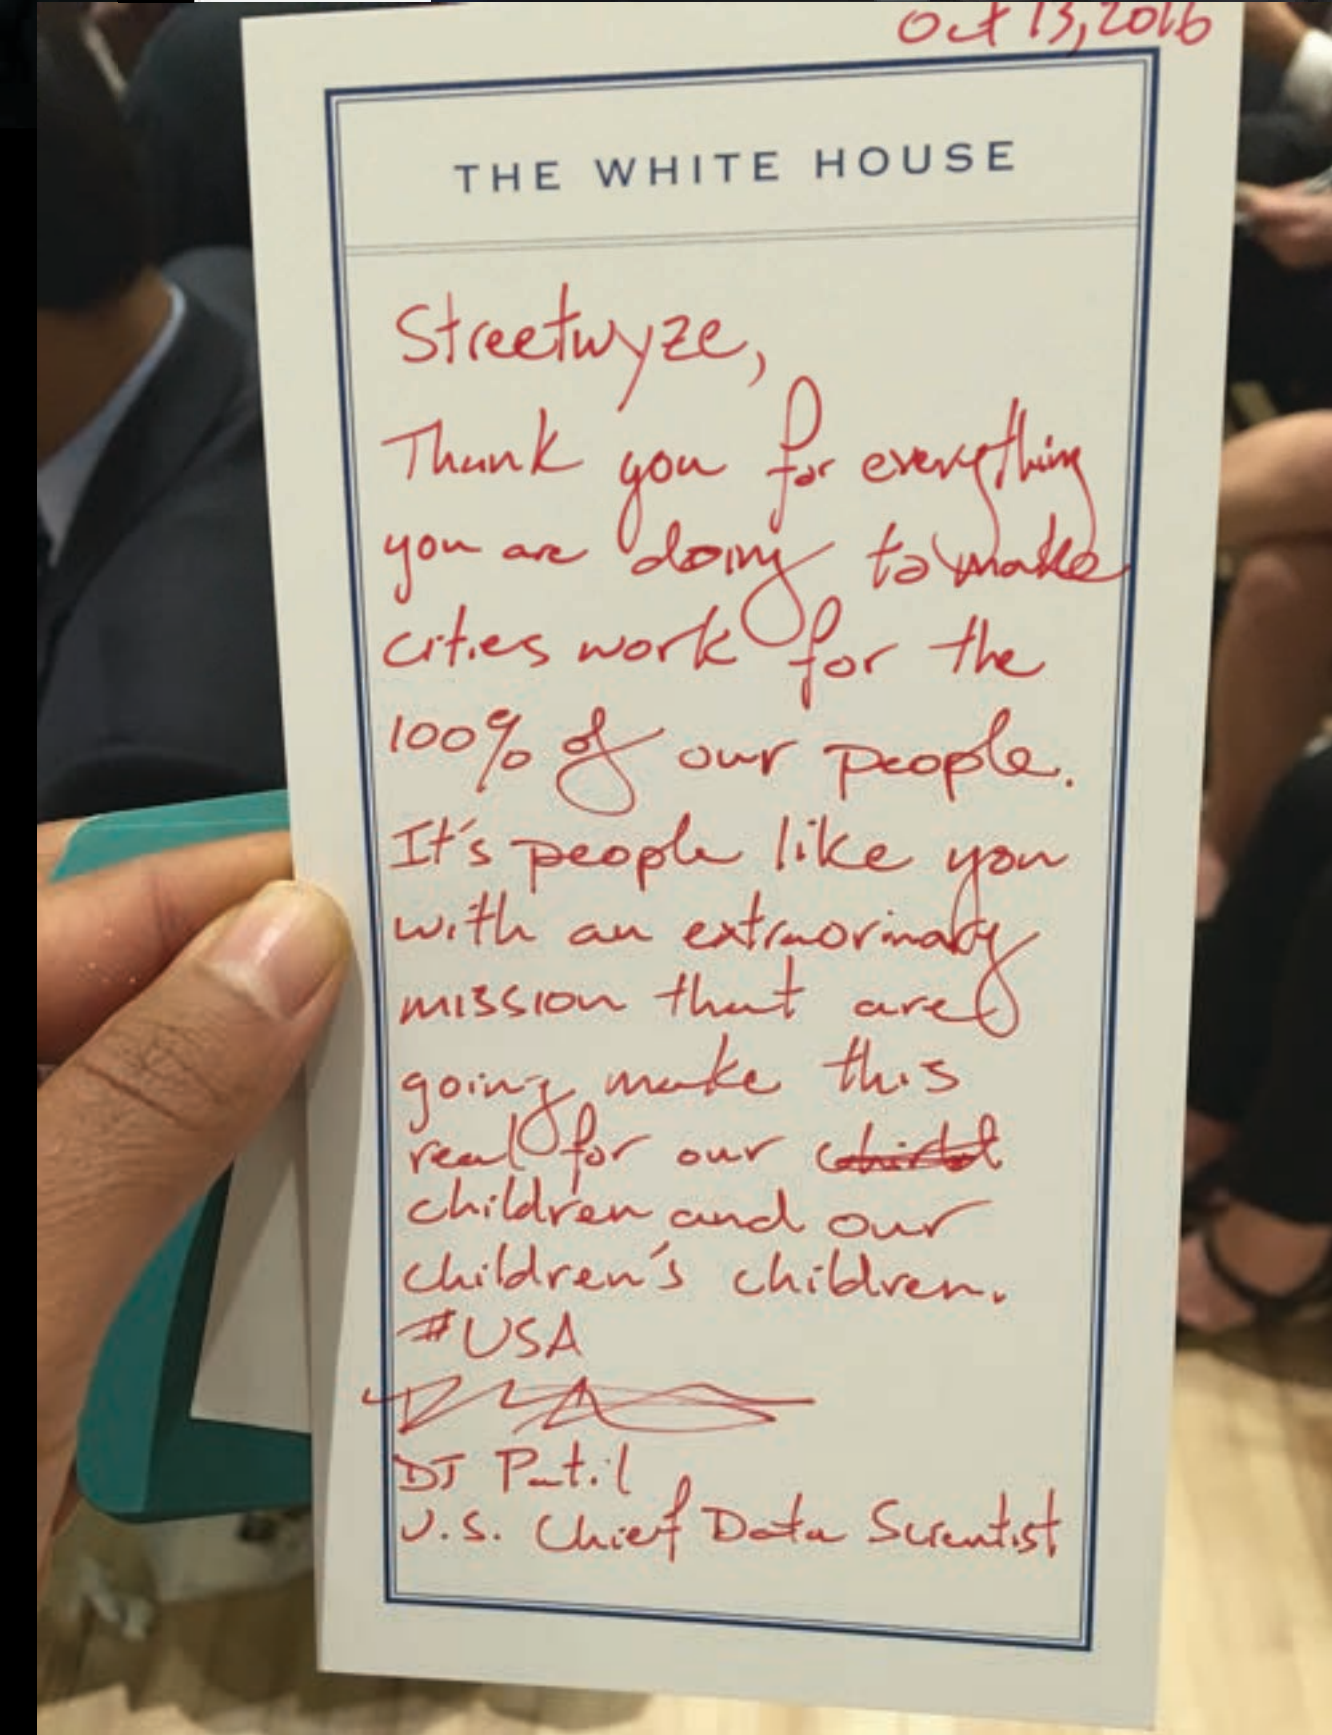 Oct 13, 2016
THE WHITE HOUSE
Streetwyze,
Thank you for everything
you are doing to make
cities work for the
100% of our people.
It's people like you
with an extraorinary
mission that are
going make this
real for our
children and our
children's children.
#USA
DJ Patil
U.S. Chief Data Scientist